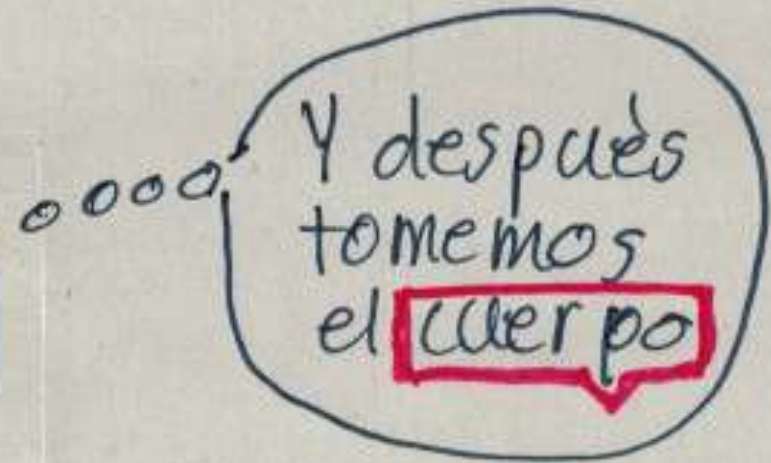 Y despuès
tomemos
el cuerpo